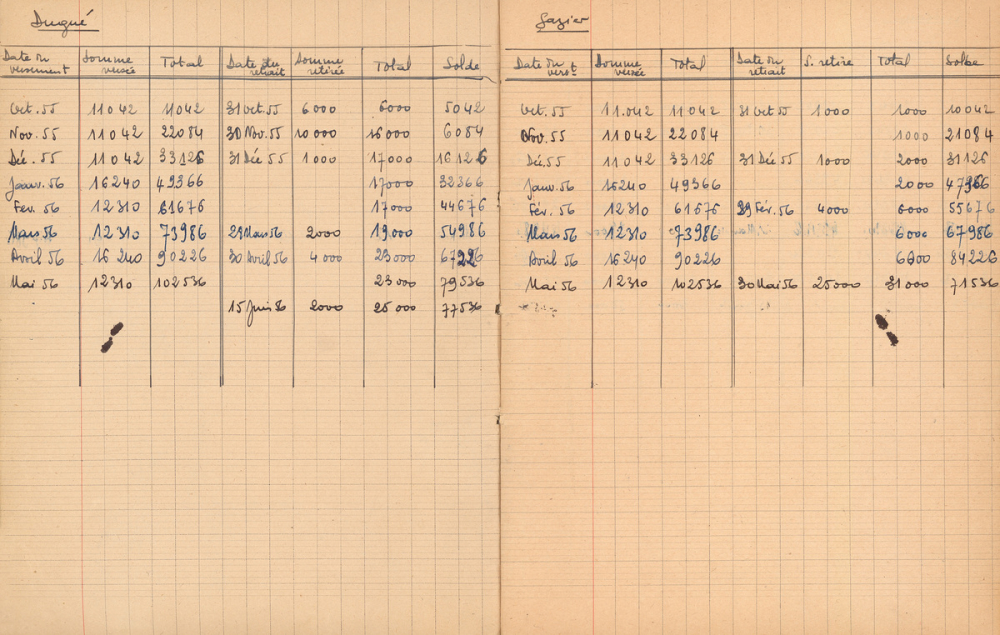 Dugué
Date du versement Somme versée Total Date du retrait Somme retirée Total Solde
Oct. 55 11042 11042 31 Oct. 55 6000 6000 5042
Nov. 55 11042 22084 30 Nov. 55 10000 16000 6084
Déc. 55 11042 33126 31 Déc 55 1000 17000 16126
Janv. 56 16240 49366 17000 32366
Fév. 56 12310 61676 17000 44676
Mars 56 12310 73986 29 Mars 56 2000 19000 54986
Avril 56 16240 90226 30 Avril 56 4000 23000 67226
Mai 56 12310 102536 23000 79536
15 Juin 56 2000 25000 77536
Gazier
Date du vers.t Somme versée Total Date du retrait S. retire Total Solde
Oct. 55 11.042 11042 31 Oct 55 1000 1000 10042
Nov. 55 11042 22084 1000 21084
Déc. 55 11042 33126 31 Déc 55 1000 2000 31126
Janv. 56 16240 49366 2000 47366
Fév. 56 12310 61676 29 Fév. 56 4000 6000 55676
Mars 56 12310 73986 6000 67986
Avril 56 16240 90226 6000 84226
Mai 56 12310 102536 30 Mai 56 25000 31000 71536